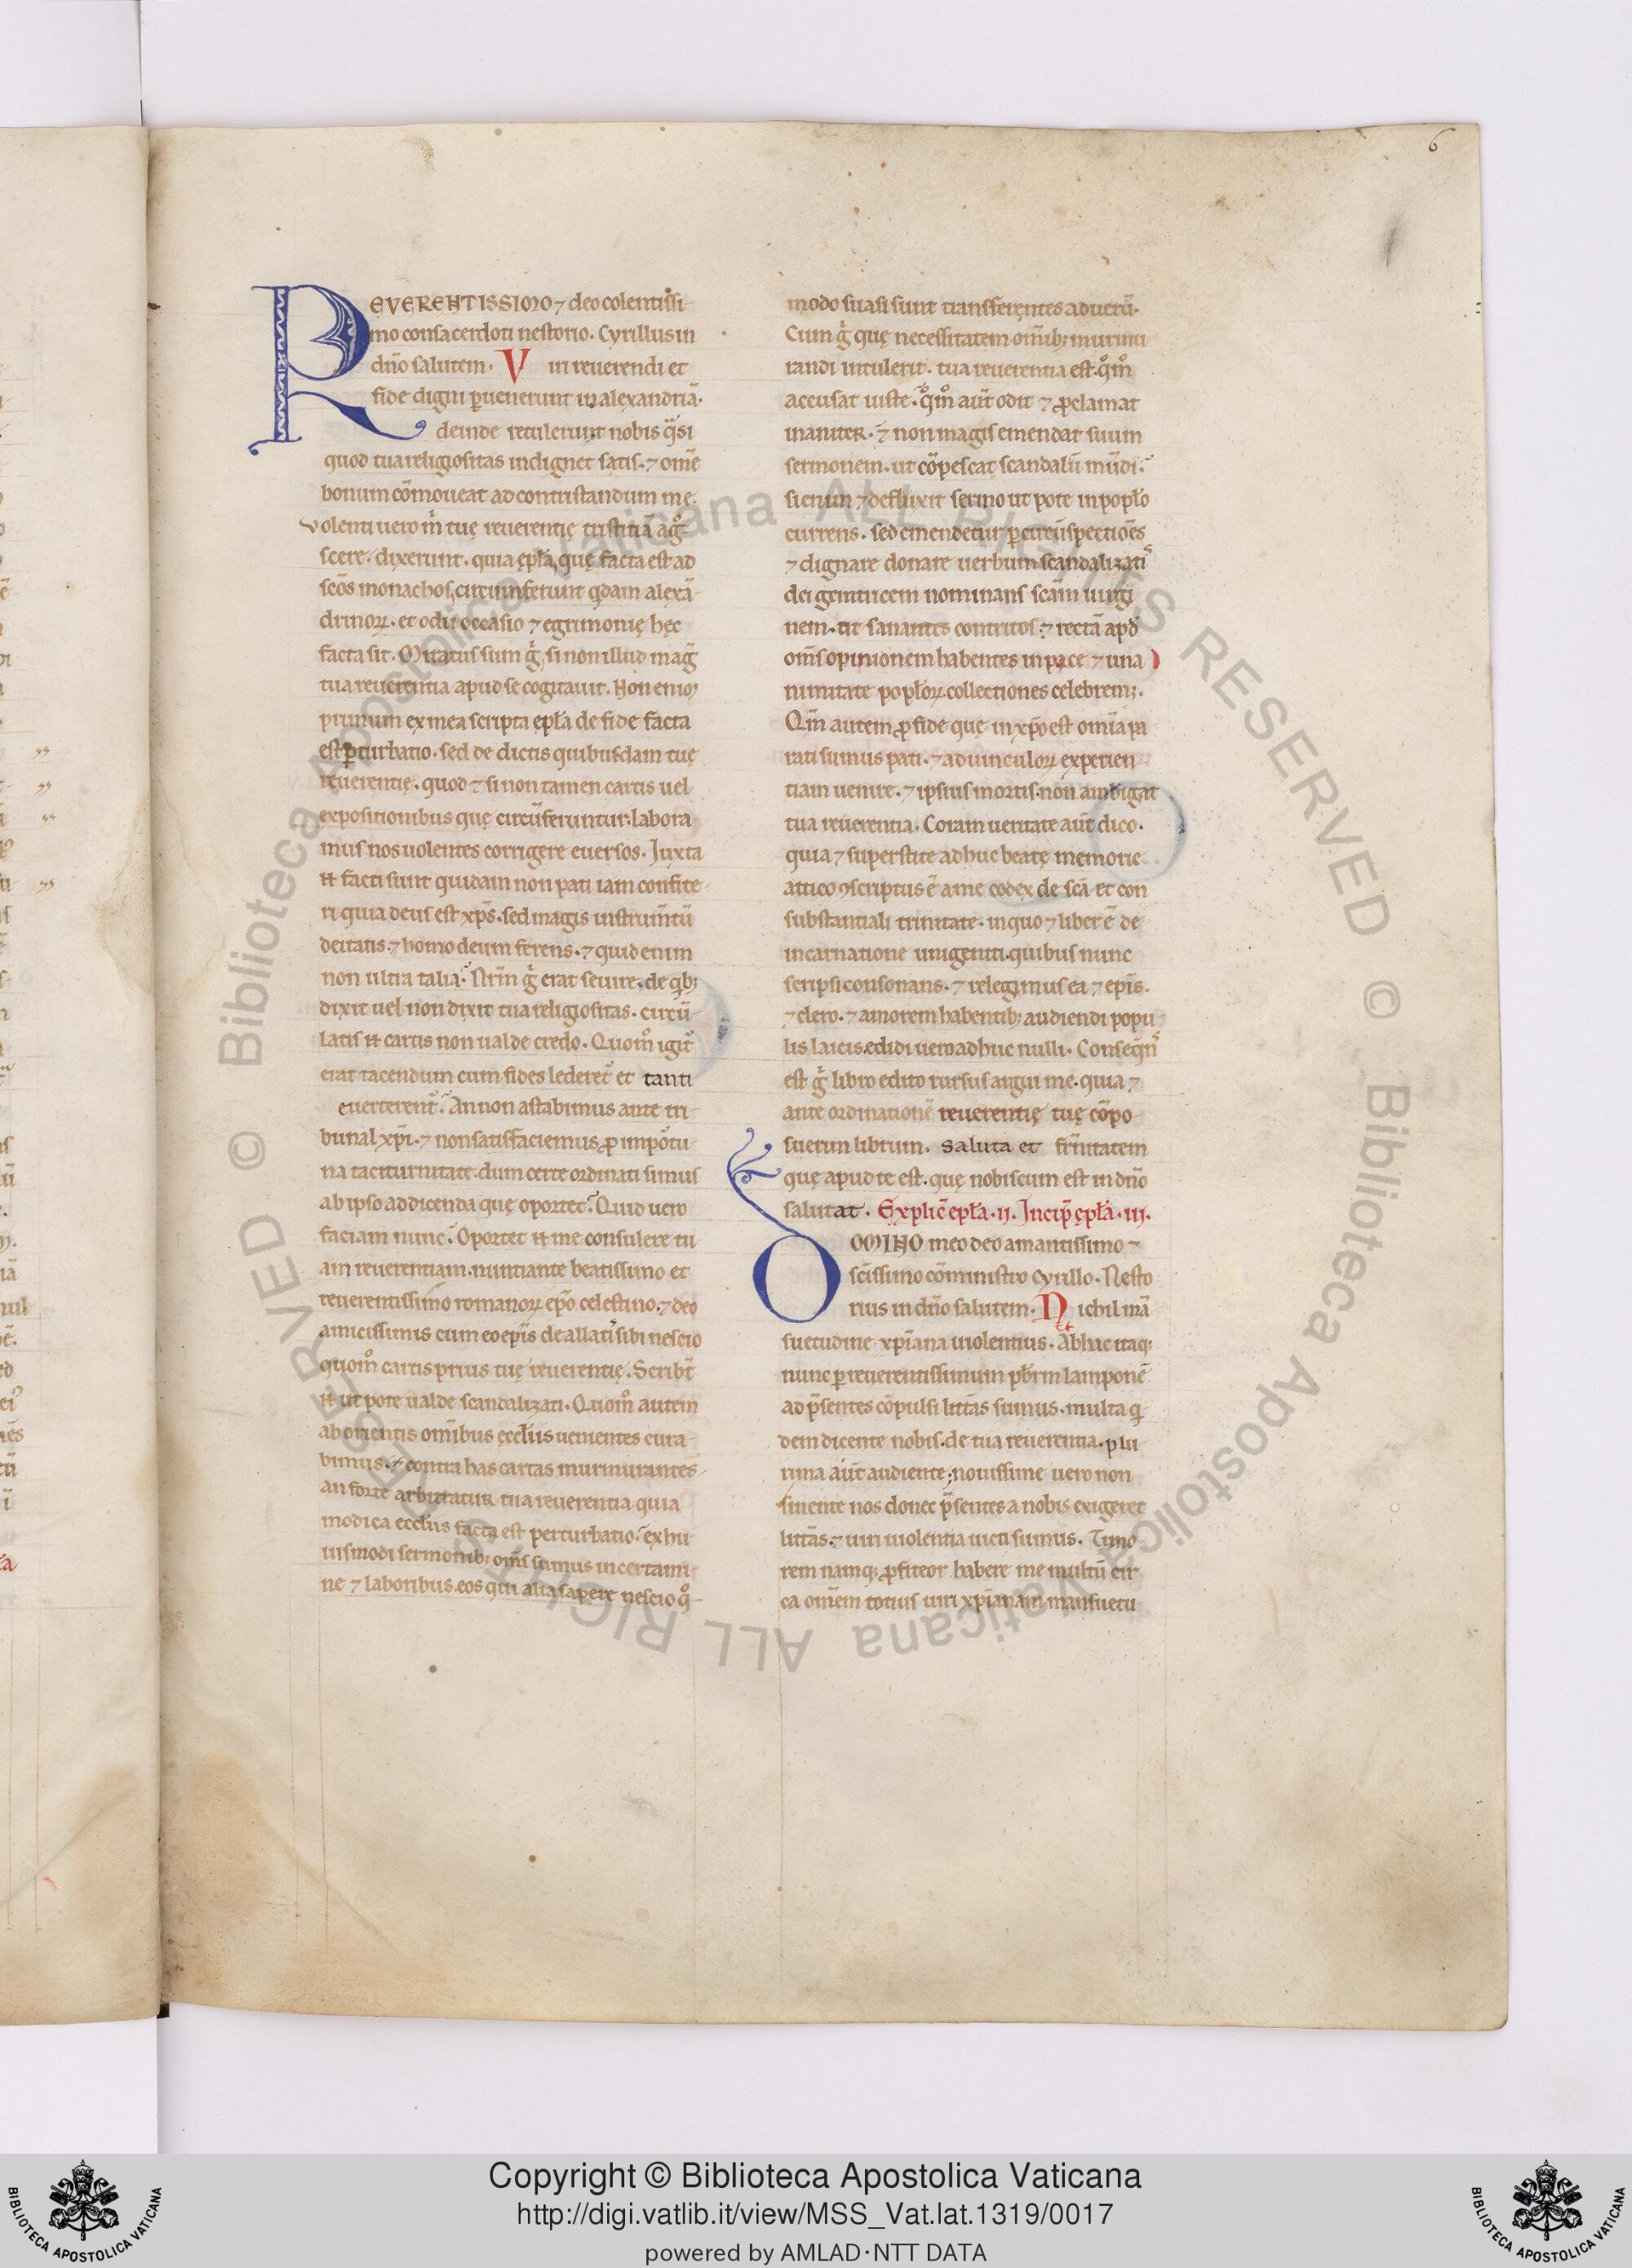 6
REVERENTISSIMO ⁊ deo colentissi-
mo consacerdoti nestorio. Cyrillus in
dño salutem. Viri reuerendi et
fide digni ꝑuenerunt in alexandriã.
deinde retulerunt nobis q̃si
quod tua religiositas indignet̃ satis. ⁊ om̃e
bonum cõmoueat ad contristandum me.
volenti uero m̃ tuę reuerentię tristitiã agͦ-
scere. dixerunt. quia ępła, quę facta est ad
scõs monachos, circumferunt q̃dam alexã-
drinoꝝ. et odii occasio ⁊ egrimonię hęc
facta sit. Miratus sum g̃, si non illud mag̃
tua reuerentia apud se cogitauit. Non eniꝫ
primum ex mea scripta ępła de fide facta
est ꝑturbatio. sed de dictis quibusdam tuę
reuerentię. quod ⁊ si non tamen cartis uel
expositionibus quę circũferuntur. labora
mus nos uolentes corrigere euersos. Juxta
N facti sunt quidam non pati iam confite-
ri quia deus est xp̃s. sed magis instrum̃tũ
deitatis. ⁊ homo deum ferens. ⁊ quid enim
non ultra talia. Nr̃m g̃ erat seuire. de qͥbꝫ
dixit uel non dixit tua religiositas. circũ-
latis N cartis non ualde credo. Quomͦ igit̃
erat tacendum cum fides lederet̃ et tanti
euerterent̃. An non astabimus ante tri-
bunal xp̃i. ⁊ non satisfaciemus ꝓ impor̃tu
na taciturnitate. dum certe ordinati simus
ab ipso ad dicenda quę oportet. Quid uero
faciam nunc. Oportet N me consulere tu-
am reuerentiam. nuntiante beatissimo et
reuerentissimo romanoꝝ ep̃o celestino. ⁊ deo
amicissimis cum eo ep̃is de allatis sibi nescio
quomͦ cartis prius tuę reuerentię. Scribt̃
N ut pote ualde scandalizati. Quomͦ autem
ab orientis om̃ibus ęcctiis uenientes cura-
bimus. ⁊ contra has cartas murmurantes-
an forte arbitratur tua reuerentia quia
modica ecctiis facta est perturbatio. ex hu
iusmodi sermonibꝫ om̃s sumus in certami-
ne ⁊ laboribus. eos qui alia sapere nescio qͦ-
modo suasi sunt transferentes ad uerũ.
Cum g̃ quę necessitatem om̃ibꝫ murmu
randi intulerit. tua reuerentia est. qͦmͦ
accusat iuste. qͦmͦ aut̃ odit ⁊ ꝓclamat
inaniter. ⁊ non magis emendat suum
sermonem. ut cõpescat scandalũ mũdi.
si enim ⁊ defluxit sermo ut pote in popło
currens. sed emendetur ꝑ circũspectiões
⁊ dignare donare uerbum scandalizatis
dei genitricem nominans scãm uirgi
nem. ut sanantes contritos. ⁊ rectã apͩ
om̃s opinionem habentes in pace ⁊ una
nimitate popłoꝝ collectiones celebremꝫ.
Qm̃ autem ꝓ fide quę in xp̃o est om̃ia pa
rati sumus pati. ⁊ ad uinculoꝝ experien
tiam uenire. ⁊ ipsius mortis. non ambigat
tua reuerentia. Coram ueritate aut̃ dico.
quia ⁊ superstite adhuc beatę memorie
attico ꝯscriptus ẽ a me codex de scã et con
substantiali trinitate. in quo ⁊ liber ẽ de
incarnatione unigeniti. quibus nunc
scripsi consonans. ⁊ relegimus ea ⁊ ep̃is.
⁊ clero. ⁊ amorem habentibꝫ audiendi popu
lis laicis. edidi uero adhuc nulli. Conseqñs
est g̃ libro edito rursus argui me. quia ⁊
ante ordinationẽ reuerentię tuę cõpo
suerim librum. saluta et fr̃nitatem
quę apud te est. quę nobiscum est in dño
salutat. Explic̃ epła. ii. Incip̃ ępła. iii.
DOMINO meo deo amantissimo ⁊
scĩssimo cõministro cyrillo. Nesto
rius in dño salutem. Nichil mã
suetudine xp̃iana uiolentius. Ab hac itaqꝫ
nunc ꝑ reuerentissimum pƀrm lamponẽ
ad p̃sentes cõpulsi litt̃as sumus. multa qͥ
dem dicente nobis. de tua reuerentia. plu
rima aut̃ audiente; nouissime uero non
sinente nos donec p̃sentes a nobis exigeret
litt̃as. ⁊ uiri uiolentia uicti sumus. Timo
rem namqꝫ ꝓfiteor habere me multũ cir
ca om̃em totius uiri xp̃ianam mansuetu
© Biblioteca Apostolica Vaticana ALL RIGHTS RESERVED © Biblioteca Apostolica Vaticana ALL RIGHTS RESERVED
Copyright © Biblioteca Apostolica Vaticana
http://digi.vatlib.it/view/MSS_Vat.lat.1319/0017
powered by AMLAD·NTT DATA
BIBLIOTECA APOSTOLICA VATICANA
BIBLIOTECA APOSTOLICA VATICANA